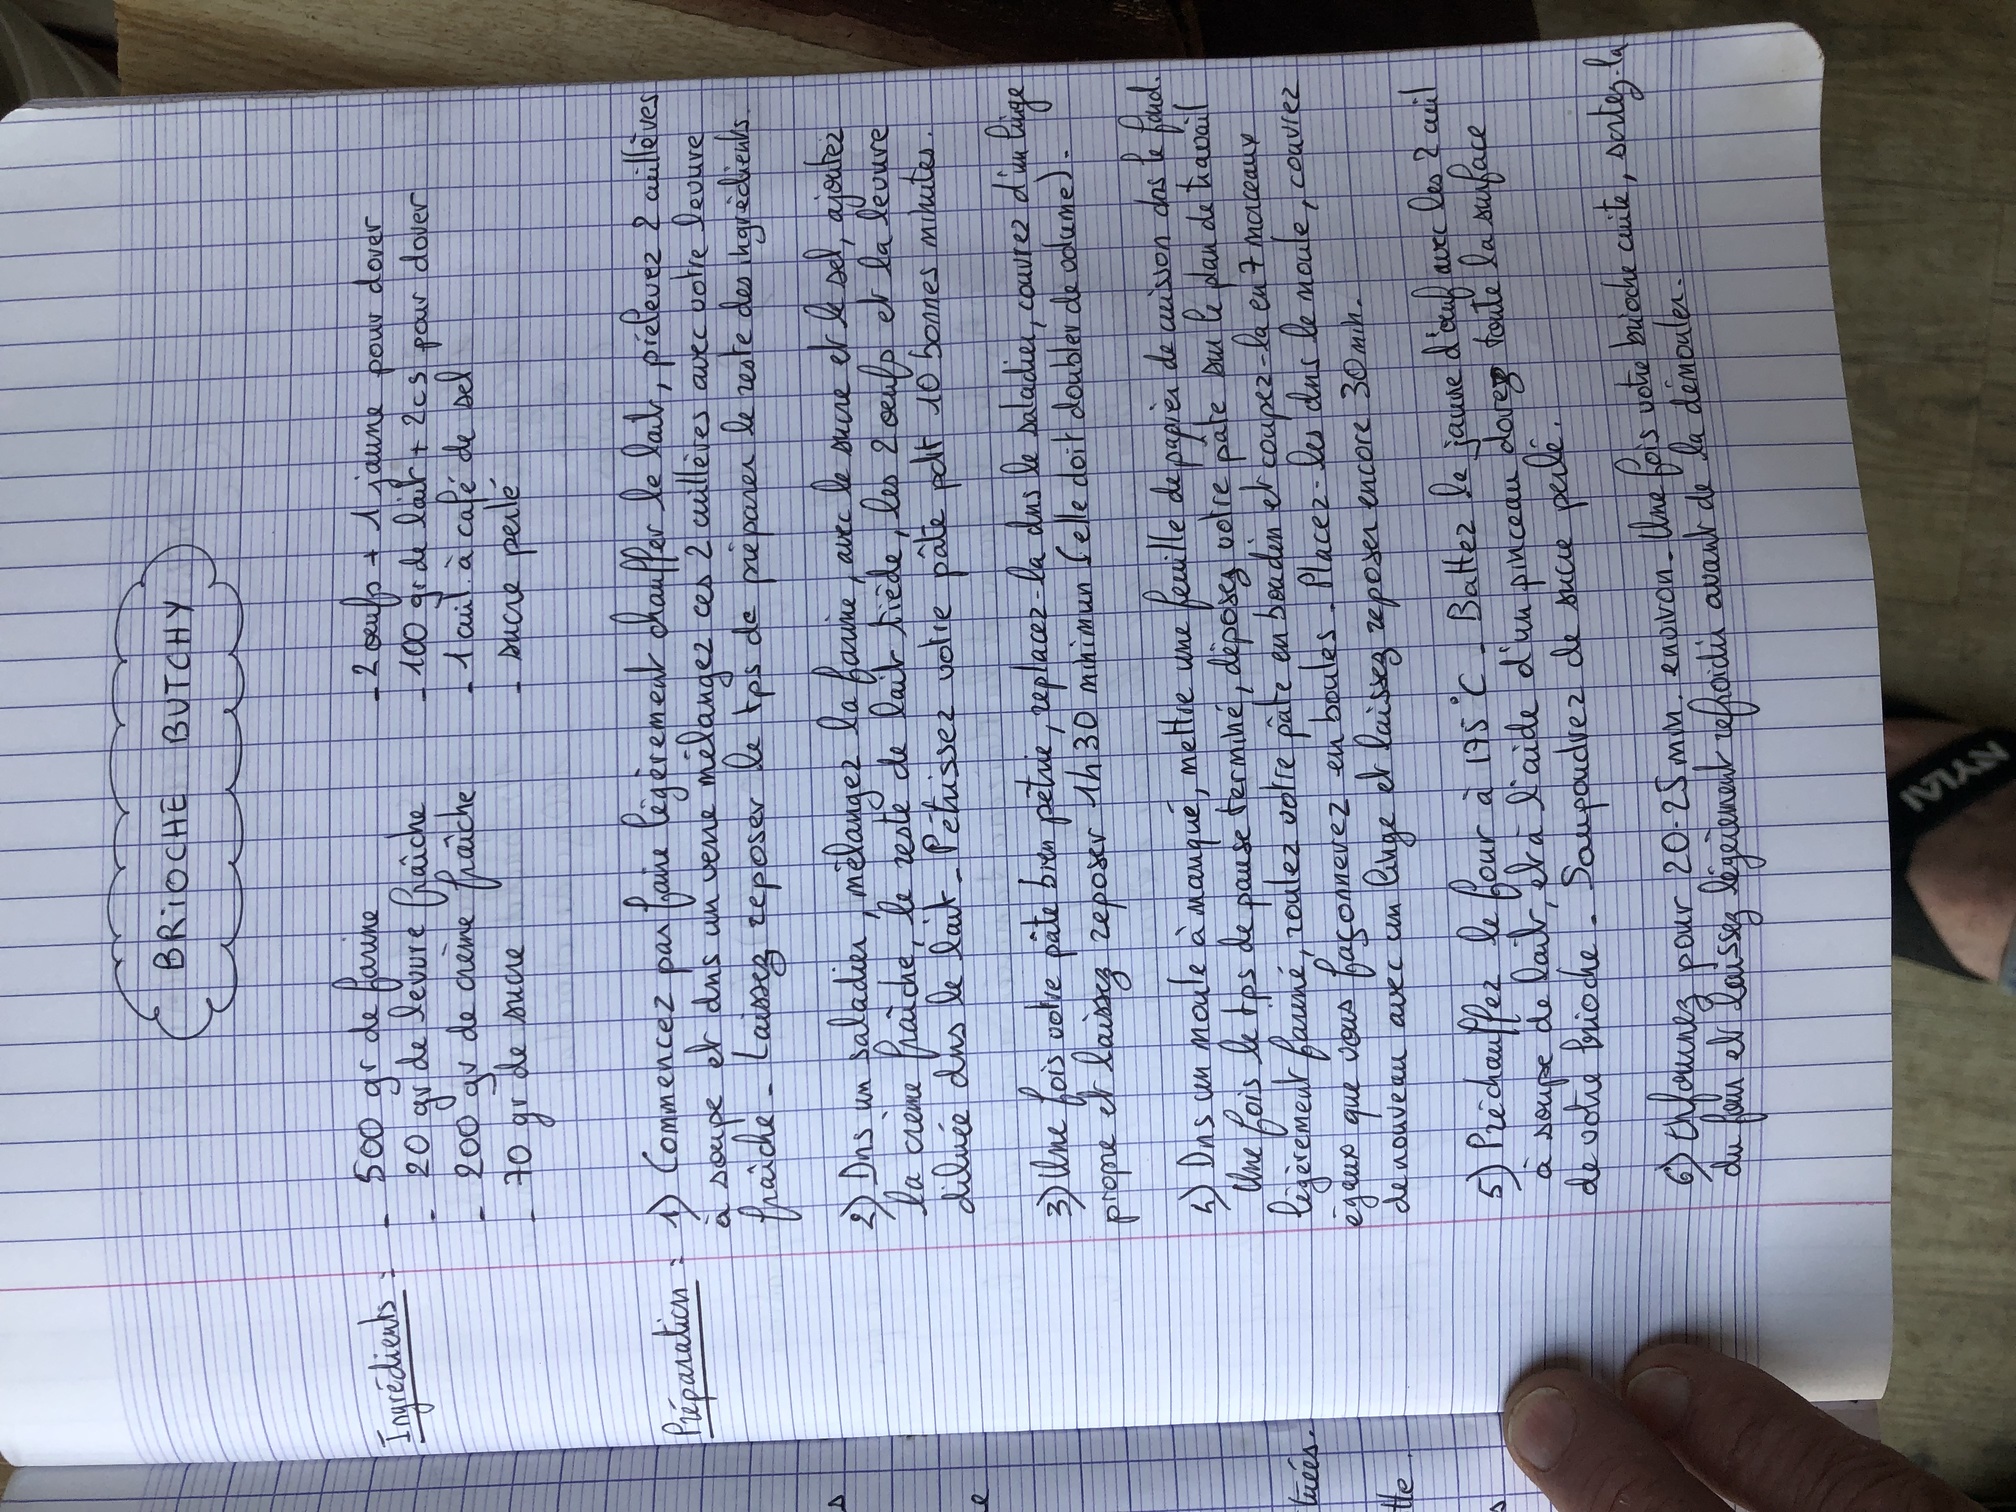 BRIOCHE BUTCHY
Ingrédients :
- 500 gr de farine
- 20 gr de levure fraîche
- 200 gr de crème fraîche
- 70 gr de sucre
- 2 oeufs + 1 jaune pour dorer
- 100 gr de lait + 2 cs pour dorer
- 1 cuil. à café de sel
- sucre perlé
Préparation :
1) Commencez par faire légèrement chauffer le lait, prélevez 2 cuillères
à soupe et dns un verre mélangez ces 2 cuillères avec votre levure
fraîche - Laissez reposer le tps de préparer le reste des ingrédients.
2) Dns un saladier, mélangez la farine, avec le sucre et le sel, ajoutez
la crème fraîche, le reste de lait tiède, les 2 oeufs et la levure
diluée dns le lait - Pétrissez votre pâte pdt 10 bonnes minutes.
3) Une fois votre pâte bien pétrie, replacez-la dns le saladier, couvrez d'un linge
propre et laissez reposer 1h30 minimun (elle doit doubler de volume).
4) Dns un moule à manqué, mettre une feuille de papier de cuisson dns le fond.
Une fois le tps de pause terminé, déposez votre pâte sur le plan de travail
légèrement fariné, roulez votre pâte en boudin et coupez-la en 7 morceaux
égaux que vous façonnerez en boules - Placez-les dns le moule, couvrez
de nouveau avec un linge et laissez reposer encore 30 min.
5) Préchauffez le four à 175°C - Battez le jaune d'oeuf avec les 2 cuil
à soupe de lait, et à l'aide d'un pinceau dorez toute la surface
de votre brioche - Saupoudrez de sucre perlé.
6) Enfournez pour 20-25 min. environ - Une fois votre brioche cuite, sortez-la
du four et laissez légèrement refroidir avant de la démouler.